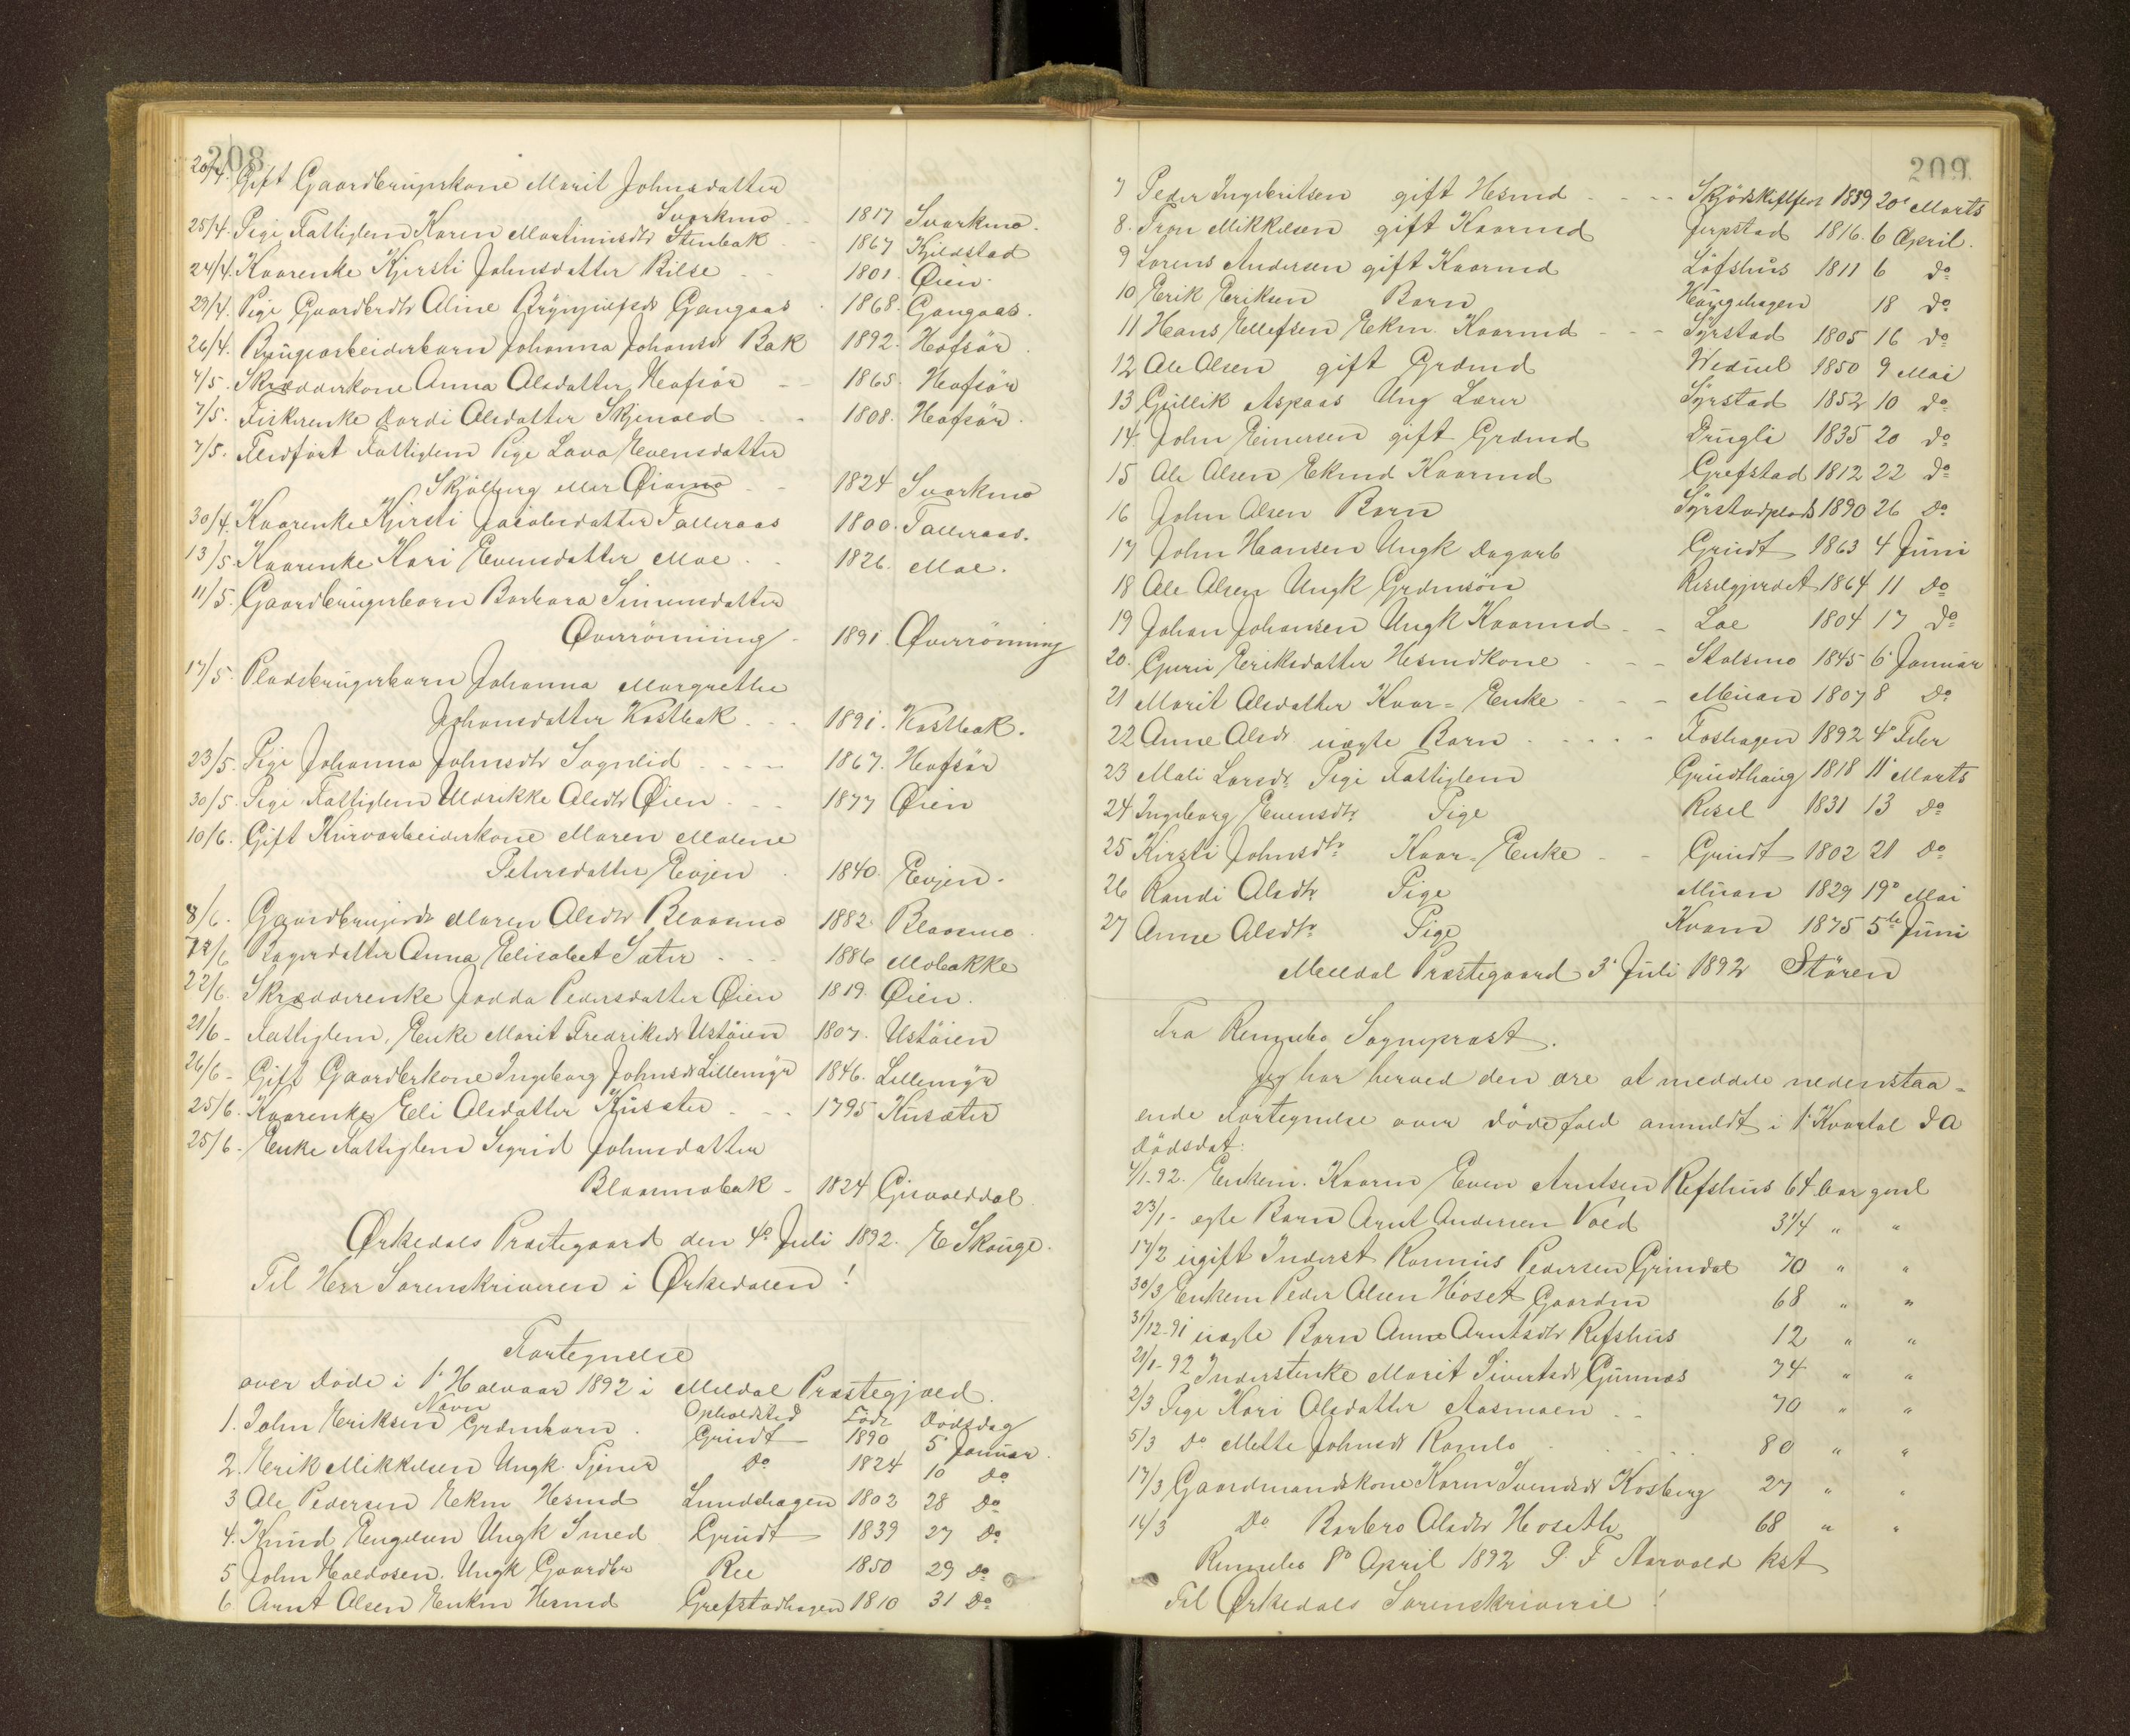 208
20/4. Gift Gaardbrugerkone Marit Johnsdatter
Svorkmo - 1817 Svorkmo.
25/4. Pige Fattiglem Karen Martinusdtr Stenbak - 1867 Kjeldstad
24/4. Kaarenke Kjersti Johnsdatter Bilse - - 1801. Øien.
29/4. Pige Gaardbrdtr Aline Brynjulfsdr Gangaas - 1868. Gangaas.
26/4. Brugsarbeiderbarn Johanna Johansdr Bak 1892. Hofsör
4/5. Skrædderkone Anna Olsdatter Hofsör - - 1865. Hofsör
7/5. Fiskerenke Gordi Olsdatter Skjenald - - 1808. Hofsör.
7/5. Fledfört Fattiglem Pige Lava Evensdatter
Skjölberg eller Øiamo - - 1824 Svorkmo
30/4. Kaarenke Kjersti Jacobsdatter Talleraas 1800. Talleraas.
13/5. Kaarenke Kari Evensdatter Moe - - 1826. Moe.
11/5. Gaardbrugerbarn Barbara Simensdatter
Øverrönning - 1891. Øverrönning
17/5. Pladsbrugerbarn Johanna Margrethe
Johansdatter Kostbak - - - 1891. Kostbak.
23/5. Pige Johanna Johnsdtr Sognlid - - - - 1867. Hofsör
30/5. Pige Fattiglem Marikke Olsdtr Øien - - - 1877 Øien
10/6. Gift Kurvarbeiderkone Maren Malene
Petersdatter Evjen - 1840. Evjen.
8/6. Gaardbrugerdr Maren Olsdtr Blaasmo 1882. Blaasmo.
12/6 Bagerdatter Anna Elisabet Sæter - - - 1886 Mobakke
22/6. Skrædderenke Jodda Pedersdatter Øien 1819. Øien.
21/6 - Fattiglem, Enke Marit Fredriksdr Ustöien 1807. Ustöien
26/6 - Gift Gaardbrkone Ingeborg Johnsdr Lillemyr 1846. Lillemyr
25/6. Kaarenke Eli Olsdatter Kusæter - - - 1795 Kusæter
25/6 - Enke Fattiglem Sigrid Johnsdatter
Blaasmobak - 1824 Gisvolddal
Ørkedals Præstegaard den 4o Juli 1892. E Skouge.
Til Herr Sorenskriveren i Ørkedalen!
Fortegnelse
over Döde i 1' Halvaar 1892 i Meldal Præstegjæld.
Navn Opholdsted Födt Dödsdag
1. John Eriksen Grdmbarn. Grindt 1890 5' Januar.
2. Erik Mikkelsen Ungk. Tjener Do 1824 10 Do
3 Ole Pedersen Ekm Hesmd Lundshagen 1802 28 Do
4. Knud Engelsen Ungk Smed Grindt 1839 27 Do.
5 John Haldosen. Ungk Gaardbr Ree 1850 29 Do
6 Arnt Olsen Enkm Hesmd Grefstadhagen 1810 31 Do
209.
7 Peder Ingebritsen gift Hesmd - - - - 1859 20' Marts
8. Tron Mikkelsen gift Kaarmd Jerpstad 1816. 6 April.
9 Lorens Andersen gift Kaarmd Löfshus 1811 6 Do
10 Erik Eriksen Barn Haugshagen 18 Do
11 Hans Ellefsen Ekm. Kaarmd - - - Syrstad 1805 16 Do
12 Ole Olsen gift Grdmd 1850 9 Mai
13 Gullik Aspaas Ung Lærer Syrstad 1852 10 Do
14. John Einersen gift Grdmd Drugli 1835 20 Do
15 Ole Olsen Ekmd Kaarmd Grefstad 1812 22 Do
16 John Olsen Barn Syrstadplads 1890 26 Do
17 John Haansen Ungk Dagarb Grindt 1863 4 Juni
18 Ole Olsen Ungk Grdmsön Reselgjerdet 1864 11 Do
19 Johan Johansen Ungk Kaarmd - - Loe 1804 17 Do
20. Guru Eriksdatter Hesmdkone - - - Stolsmo 1845 6' Januar
21 Marit Olsdatter Kaar = Enke - - - Muan 1807 8 Do
22 Anne Olsdr uægte Barn - - - - - Foshagen 1892 4' Febr
23 Mali Larsdr. Pige Fattiglem Grindthaug 1818 11' Marts
24 Ingeborg Evensdtr. Pige Resel 1831 13 Do
25 Kirsti Johnsdtr Kaar = Enke - - Grindt 1802 21 Do
26 Randi Olsdtr. Pige Muan 1829 19o Mai
27 Anne Olsdtr Pige Kvam 1875 5te Juni
Meldal Præstegaard 3' Juli 1892 Stören
Fra Rennebo Sognepræst.
Jeg har herved den ære at meddele nedenstaa=
ende Fortegnelse over Dödsfald anmeldt i 1' Kvartal D A
Dödsdat:
4/1-92. Enkem. Kaarm Even Arntsen Refshus 64 Aar gml
23/1 - ægte Barn Arnt Andersen Vold 3 1/4 " "
17/2 ugift Inderst Rasmus Pedersen Grindal 70 " "
30/3 Enkem Peder Olsen Hoset Gaardm 68 " "
31/12-91 uægte Barn Anne Arntsdtr Refshus 12 " "
21/1-92 Inderstenke Marit Sivertsdr Gunnes 74 " "
2/3 Pige Kari Olsdatter Aasmoen - - 70 " "
5/3 Do Mette Johnsdr Ramlo - - - - 80 " "
17/3 Gaardmandskone Karen Svendsdr Kosberg 27 " "
14/3 Do Barbro Olsdtr Hoseth 68 " "
Rennebo 8o April 1892 P. F Aarvold kst
Til Ørkedals Sorenskriveri!